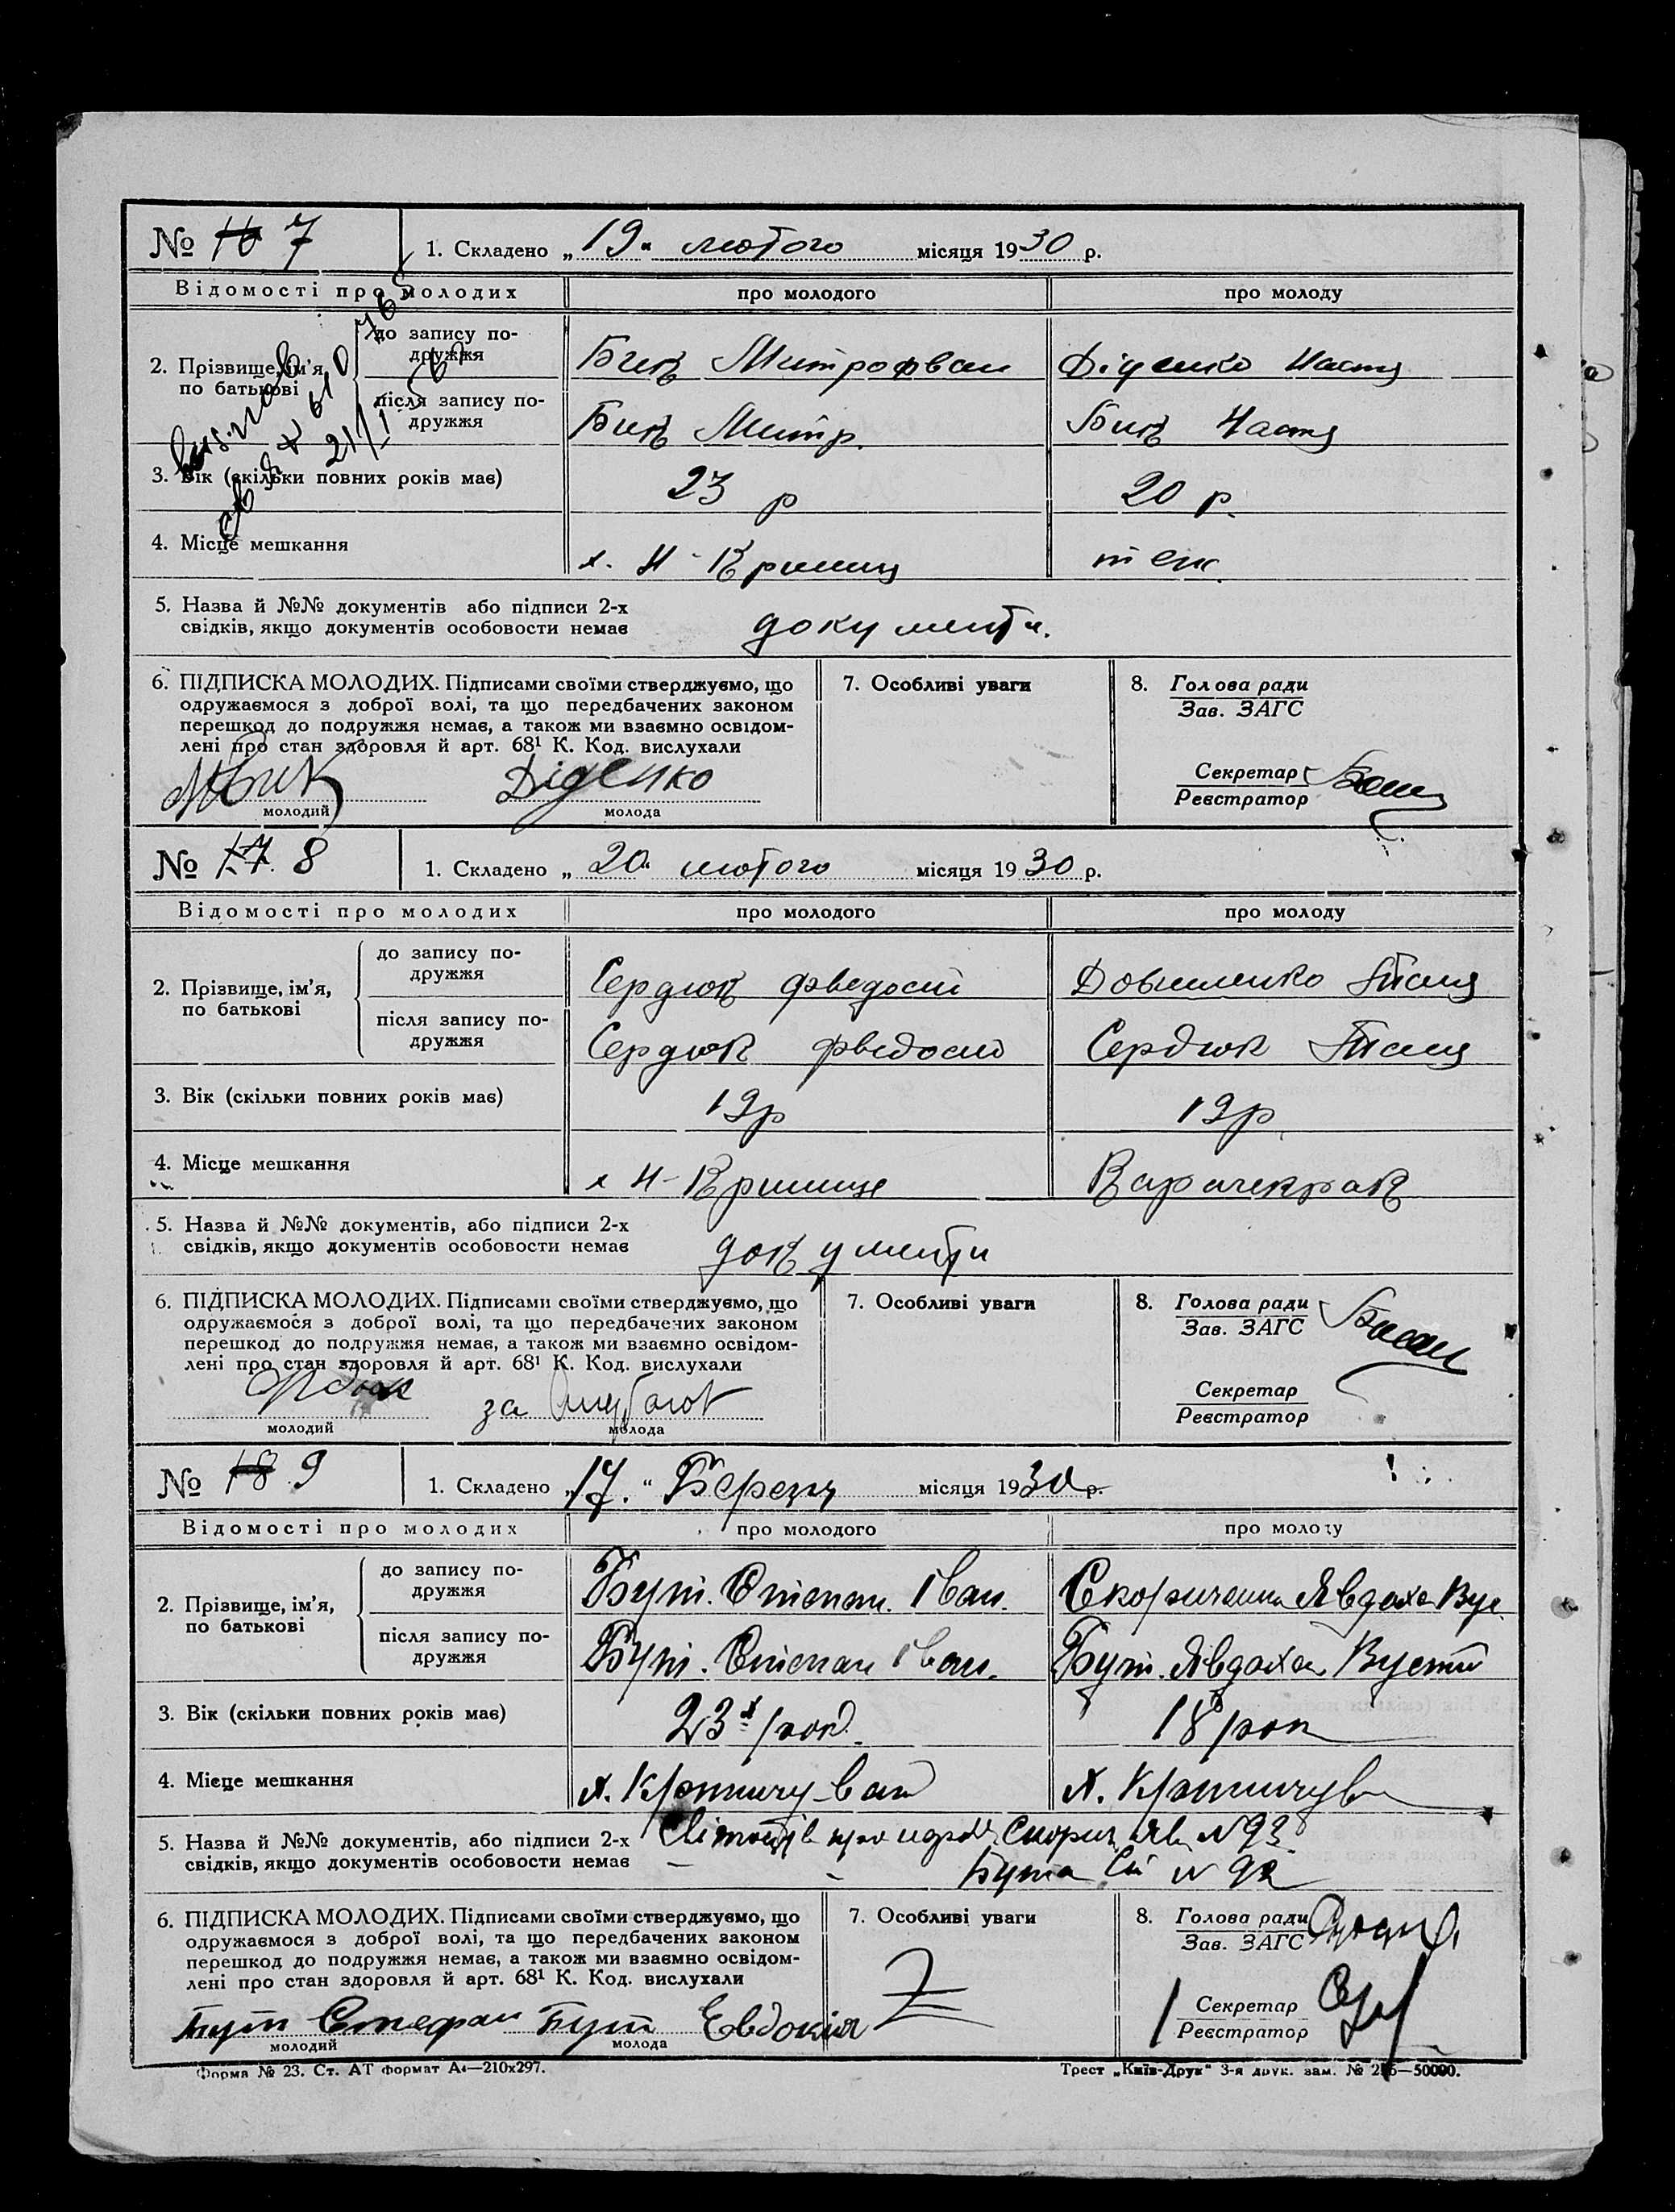 № 16 7
1. Складено „19“ лютого місяця 1930 р.
Відомості про молодих
про молодого
про молоду
2. Прізвище, ім’я, по батькові
до запису подружжя
Бик Митрофван
Діденко Настя
після запису подружжя
Бик Митр.
Бик Настя
3. Вік (скільки повних років має)
23 р
20 р.
4. Місце мешкання
х. Н-Криниц
теж
5. Назва й №№ документів або підписи 2-х
свідків, якщо документів особовости немає
документи.
6. ПІДПИСКА МОЛОДИХ. Підписами своїми стверджуємо, що
одружаємося з доброї волі, та що передбачених законом
перешкод до подружжя немає, а також ми взаємно освідом-
лені про стан здоровля й арт. 68¹ К. Код. вислухали
МБик
молодий
Діденко
молода
7. Особливі уваги
8. Голова ради
Зав. ЗАГС
Секретар
Реєстратор
№ 17 8
1. Складено „20“ лютого місяця 1930 р.
Відомості про молодих
про молодого
про молоду
2. Прізвище, ім’я,
по батькові
до запису по-
дружжя
Сердюк Фведосій
Довженко
після запису по-
дружжя
Сердюк Фведосій
Сердюк
3. Вік (скільки повних років має)
19р
19р
4. Місце мешкання
х Н-Кринице
Карачекрак
5. Назва й №№ документів, або підписи 2-х
свідків, якщо документів особовости немає
документи
6. ПІДПИСКА МОЛОДИХ. Підписами своїми стверджуємо, що
одружаємося з доброї волі, та що передбачених законом
перешкод до подружжя немає, а також ми взаємно освідом-
лені про стан здоровля й арт. 68¹ К. Код. вислухали
за
молодий
молода
7. Особливі уваги
8. Голова ради
Зав. ЗАГС
Секретар
Реєстратор
№ 18 9
1. Складено „17.“ Березня місяця 1930 р.
Відомості про молодих
про молодого
про молоду
2. Прізвище, ім’я,
по батькові
до запису по-
дружжя
Бут. Степан. Іван.
Явдоха Вус.
після запису по-
дружжя
Бут. Степан Іван.
Бут. Явдоха Вусти
3. Вік (скільки повних років має)
23 рок.
18 рок
4. Місце мешкання
х.
х.
5. Назва й №№ документів, або підписи 2-х
свідків, якщо документів особовости немає
про Скорич Яв. №93
Бута Ст №92
6. ПІДПИСКА МОЛОДИХ. Підписами своїми стверджуємо, що
одружаємося з доброї волі, та що передбачених законом
перешкод до подружжя немає, а також ми взаємно освідом-
лені про стан здоровля й арт. 68¹ К. Код. вислухали
Бут Стефан
молодий
Бут Евдокия
молода
7. Особливі уваги
8. Голова ради
Зав. ЗАГС
Секретар
Реєстратор
Форма № 23. Ст. АТ формат А4—210х297.
Трест „Київ-Друк“ 3-я друк. зам. № —50000.